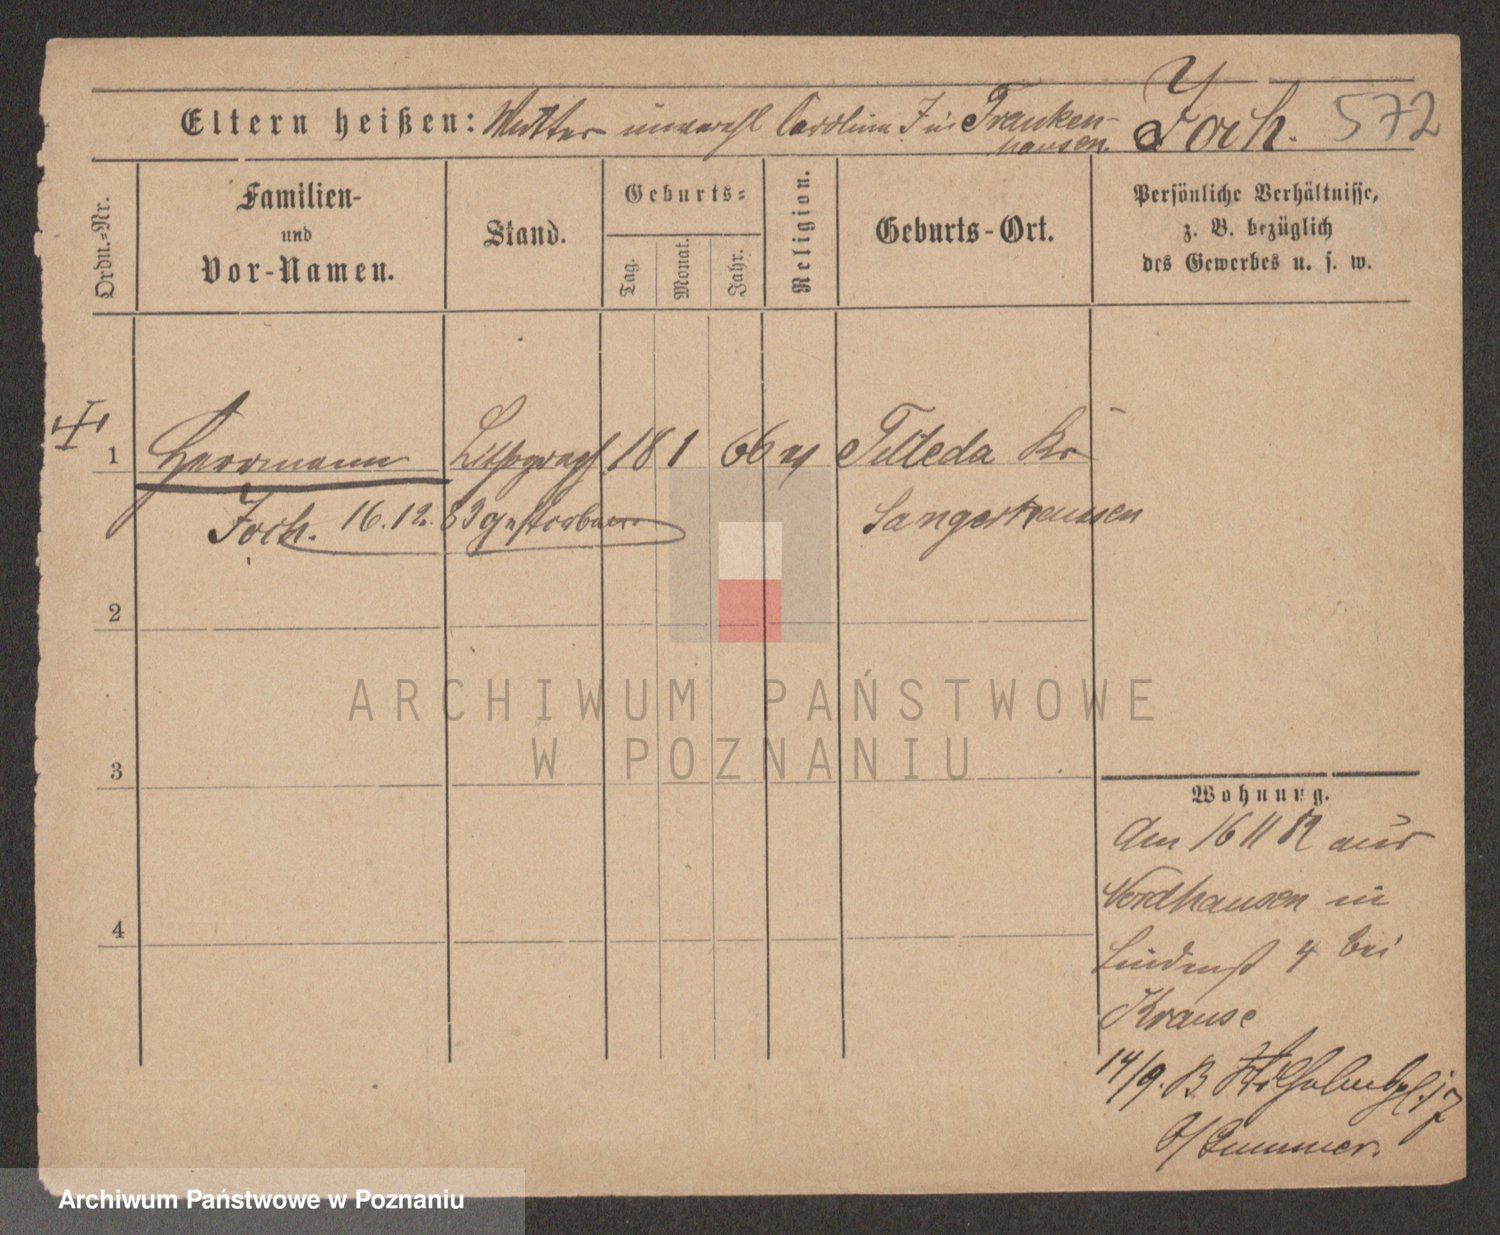 Eltern heißen: Mutter unverehl Carolina J in Franken-
hausen. Joch. 572
Ordn.=Nr.
Familien-
und
Vor-Namen.
Stand.
Geburts=
Tag.
Monat.
Jahr.
Religion.
Geburts-Ort.
Persönliche Verhältnisse,
z. B. bezüglich
des Gewerbes u. s. w.
1 Herrmann Lithograph 18 1 66 Tilleda Kr
Joch. 16.12.83 gestorben. Sangerhausen
2
3
4
Wohnung.
Am 16 11 82 aus
Nordhausen in
Lindenst 4 bei
Krause
14/9. B Wilhelmspl. 17
b/ Summer.
ARCHIWUM PAŃSTWOWE
W POZNANIU
Archiwum Państwowe w Poznaniu